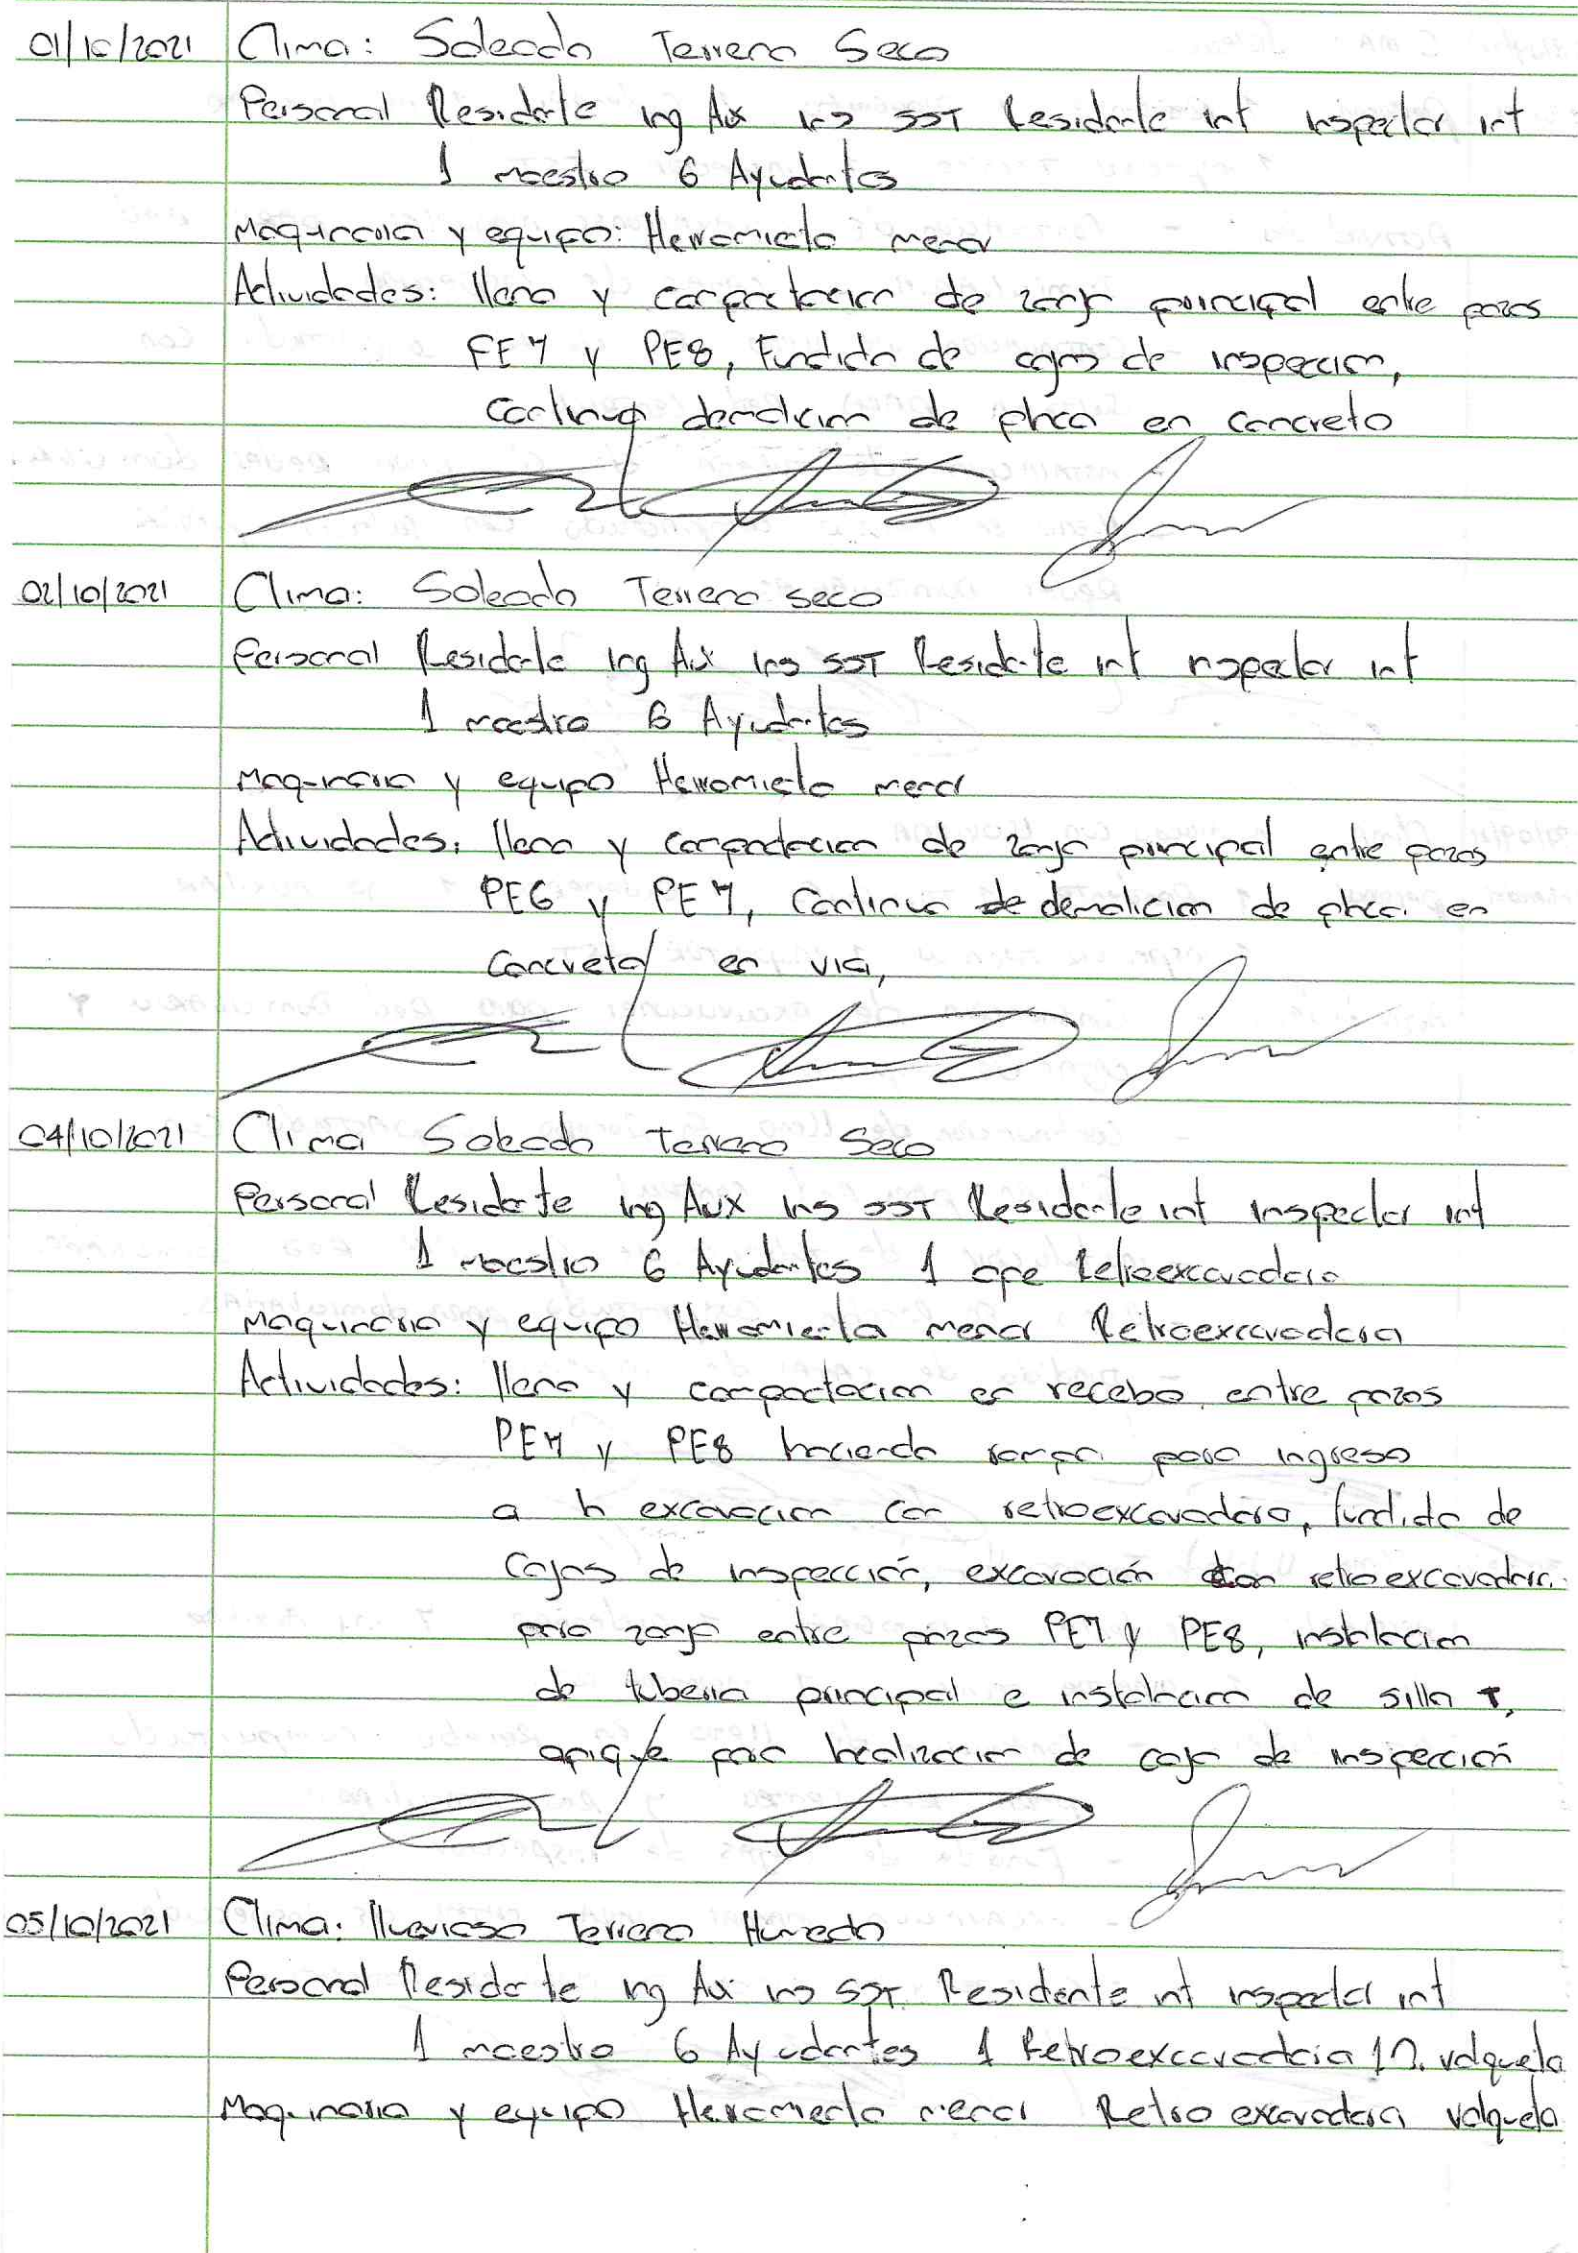 01/10/2021 Clima: Soleado Terreno Seco
Personal Residente Ing Aux Ins SST Residente int Inspector int
1 maestro 6 Ayudantes
Maquinaria y equipo: Herramienta menor
Actividades: lleno y compactacion de zanja principal entre pozos
PE7 y PE8, Fundida de cajas de inspeccion,
Continua demolicion de placa en concreto
02/10/2021 Clima: Soleado Terreno seco
Personal Residente Ing Aux Ins SST Residente int inspector int
1 maestro 6 Ayudantes
Maquinaria y equipo Herramienta menor
Actividades: lleno y compactacion de zanja principal entre pozos
PE6 y PE7, Continua demolicion de placa en
concreto en via,
04/10/2021 Clima Soleado Terreno Seco
Personal Residente Ing Aux Ins SST Residente int Inspector int
1 maestro 6 Ayudantes 1 ope Retroexcavadora
Maquinaria y equipo Herramienta menor Retroexcavadora
Actividades: lleno y compactacion en recebo entre pozos
PE7 y PE8 haciendo rampa para ingreso
a la excavacion con retroexcavadora, fundida de
Cajas de inspección, excavación con retroexcavadora
para zanja entre pozos PE7 y PE8, instalacion
de tuberia principal e instalacion de silla T,
apique para localizacion de caja de inspección
05/10/2021 Clima: lluvioso Terreno Humedo
Personal Residente Ing Aux Ins SST Residente int inspector int
1 maestro 6 Ayudantes 1 Retroexcavadora volqueta
Maquinaria y equipo Herramienta menor Retroexcavadora volqueta